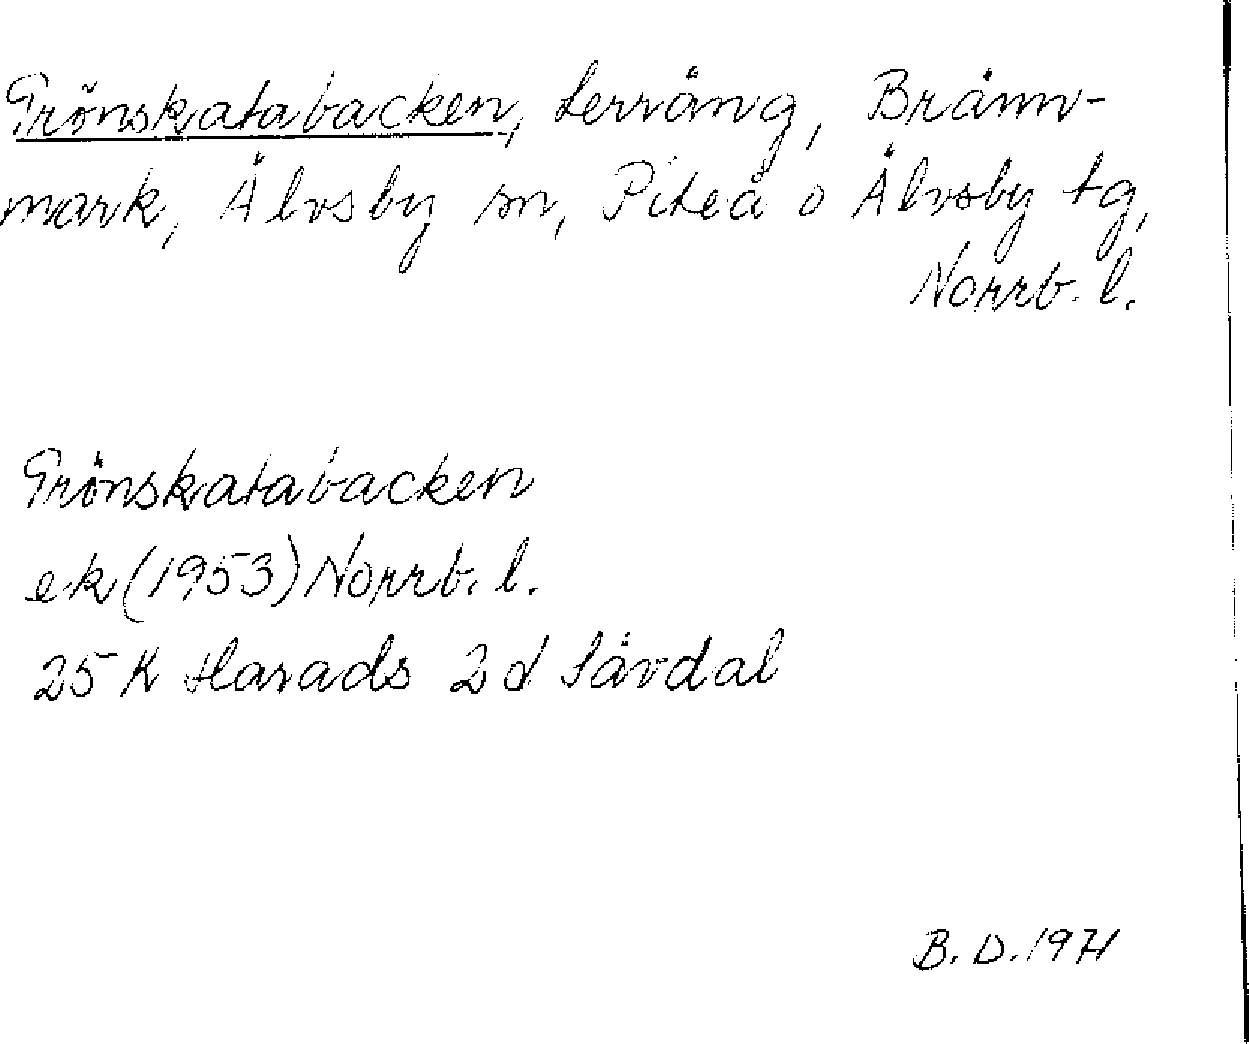 Trönskatabacken, Lerväng, Bränn-
mark, Älvsby sn, Piteå o Älvsby tg,
Norrb. l.
Trönskatabacken
ek (1953) Norrb. l.
25 K Harads 2 d Sävdal
B. D. 1971